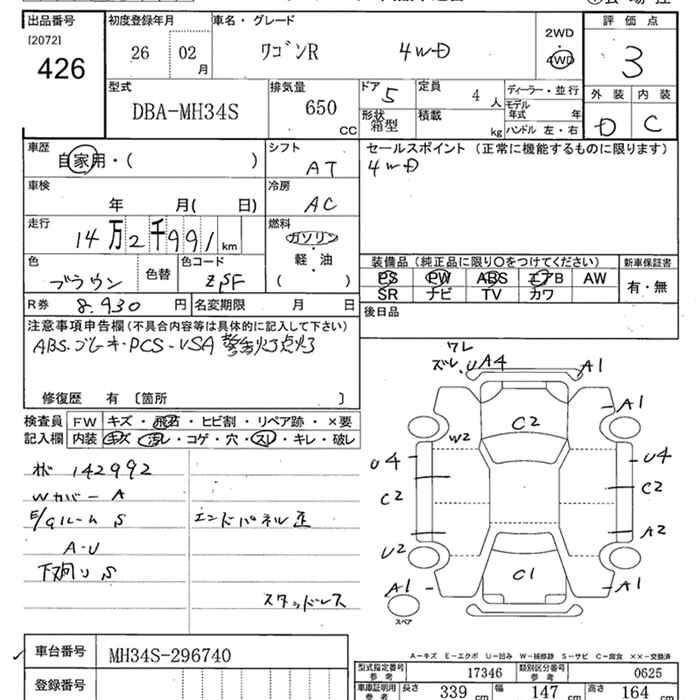 出品番号 初度登録年月 車名・グレード 評価点
[2072]
426
26 02 月 ワゴンR 4WD
2WD
4WD
3
型式 排気量 ドア 5 定員 4 人 ディーラー・並行 外装 内装
DBA-MH34S 650 CC
形状 箱型 積載 kg モデル年式 年 ハンドル 左・右
D C
車歴 シフト セールスポイント (正常に機能するものに限ります)
自家用・( ) AT 4WD
車検 冷房
年 月( 日) AC
走行 燃料
14万2千991 km ガソリン
軽・油
( )
色 色替 色コード
ブラウン ZPF
装備品 (純正品に限り○をつけてください) 新車保証書
PS PW ABS エアB AW 有・無
SR ナビ TV カワ
R券 8.930 円 名変期限 月 日 後日品
注意事項申告欄 (不具合内容等は具体的に記入して下さい)
ABS.ブレーキ.PCS-VSA 警告灯点灯
修復歴 有 〔箇所 〕
検査員 FW キズ・飛石・ヒビ割・リペア跡・×要
記入欄 内装 キズ・汚レ・コゲ・穴・スレ・キレ・破レ
142992
Wカバー A
E/gルーム S エンドパネル歪
A-U
下廻り S
スタッドレス
ワレ
ズレ.UA4 A1
A1
C2
W2
U4 U4
C2 C2
A2
U2
C1
A1 A1
スペア
A-キズ E-エクボ U-凹み W-補修跡 S-サビ C-腐食 ××-交換済
車台番号 MH34S-296740
登録番号
型式指定番号 参考 17346 類別区分番号 参考 0625
車庫証明用 参考 長さ 339 cm 幅 147 cm 高さ 164 cm